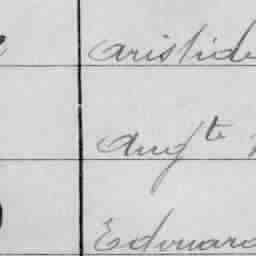 Aristide
Augte
Edouard